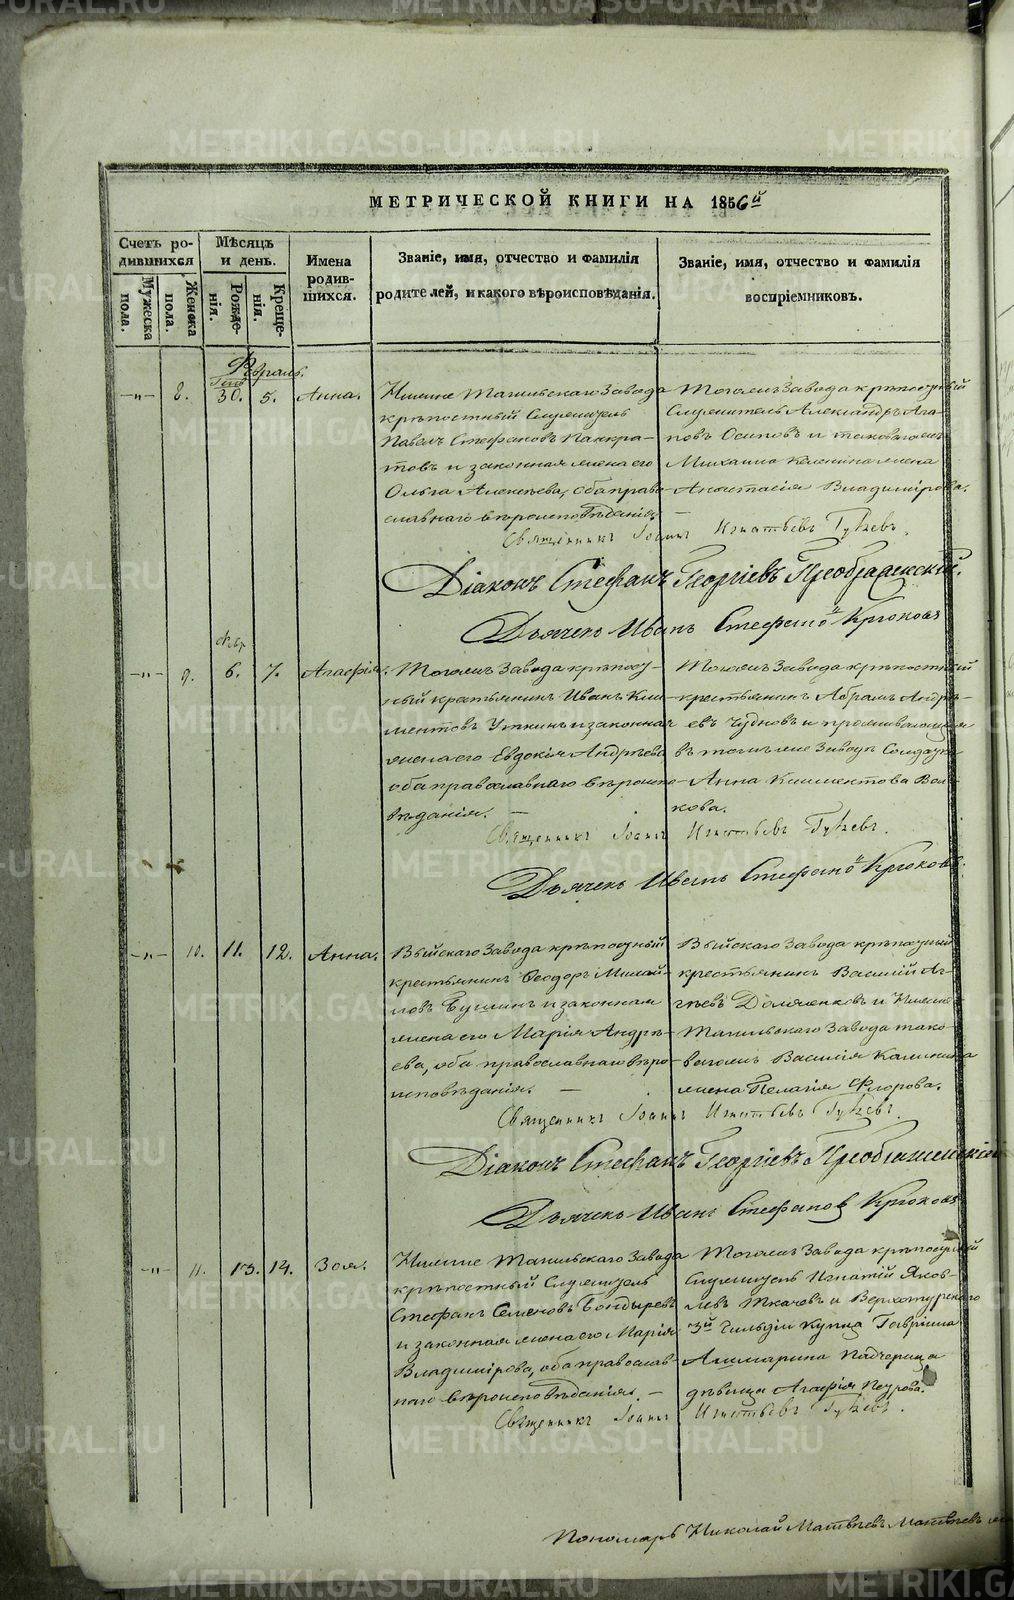 МЕТРИЧЕСКОЙ КНИГИ НА 1856й
Счетъ ро-
дившихся
Мѣсяцъ
и день.
Имена
родив-
шихся.
Званіе, имя, отчество и фамилія
родителей, и какого вѣроисповѣданія.
Званіе, имя, отчество и фамилія
воспріемниковъ.
Мужеска
пола.
Женска
пола.
Рожде-
нія.
Креще-
нія.
Февраль.
Генв
—„— 8. 30. 5. Анна.
Нижне Тагильскаго Завода
крѣпостный Служитель
Павелъ Стефановъ Панкра-
товъ и законная жена его
Ольга Алексѣева, оба право
славнаго вѣроисповѣданія.
Тогожъ Завода крѣпостный
Служитель Александръ Ага-
повъ Осиповъ и таковагожъ
Михаила жена
Анастасія Владимірова.
Священникъ Іоаннъ Игнатьевъ
Діаконъ Стефанъ Георгіевъ Преображенскій.
Дьячекъ Иванъ Стефановъ Крюковъ
Февр
—„— 9. 6. 7. Агафія.
Тогожъ Завода крѣпост-
ный крестьянинъ Иванъ Кли-
ментовъ Уткинъ и законная
жена его Евдокія Андрѣева
оба православнаго вѣроиспо-
вѣданія.
Тогожъ Завода крѣпостный
крестьянинъ Абрамъ Андрѣ-
евъ Чудновъ и проживающая
въ томъ же Заводѣ Солдатка
Анна Климентова Вол-
кова.
Священникъ Іоаннъ Игнатьевъ
Дьячекъ Иванъ Стефановъ Крюковъ.
—„— 10. 11. 12. Анна.
Выйскаго Завода крѣпостный
крестьянинъ Ѳеодоръ Михай-
ловъ и законная
жена его Марія Андрѣ-
ева, оба православнаго вѣро-
исповѣданія.
Выйскаго Завода крѣпостный
крестьянинъ Василій Аг-
гѣевъ и Нижне
Тагильскаго Завода тако-
вагожъ Василія Калинина
жена Пелагія Флорова.
Священникъ Іоаннъ Игнатьевъ
Діаконъ Стефанъ Георгіевъ Преображенскій
Дьячекъ Иванъ Стефановъ Крюковъ
—„— 11. 13. 14. Зоя.
Нижне Тагильскаго Завода
крѣпостный Служитель
Стефанъ Семеновъ Бондыревъ
и законная жена его Марія
Владимірова, оба православ-
наго вѣроисповѣданія.
Тогожъ Завода крѣпостный
служитель Игнатій Яков-
левъ Ткачовъ и Верхотурскаго
3й Гильдіи Купца Гавріила
Аммарина падчерица
дѣвица Агафія Петрова.
Священникъ Іоаннъ Игнатьевъ
Пономарь Николай Матвѣевъ
METRIKI.GASO-URAL.RU